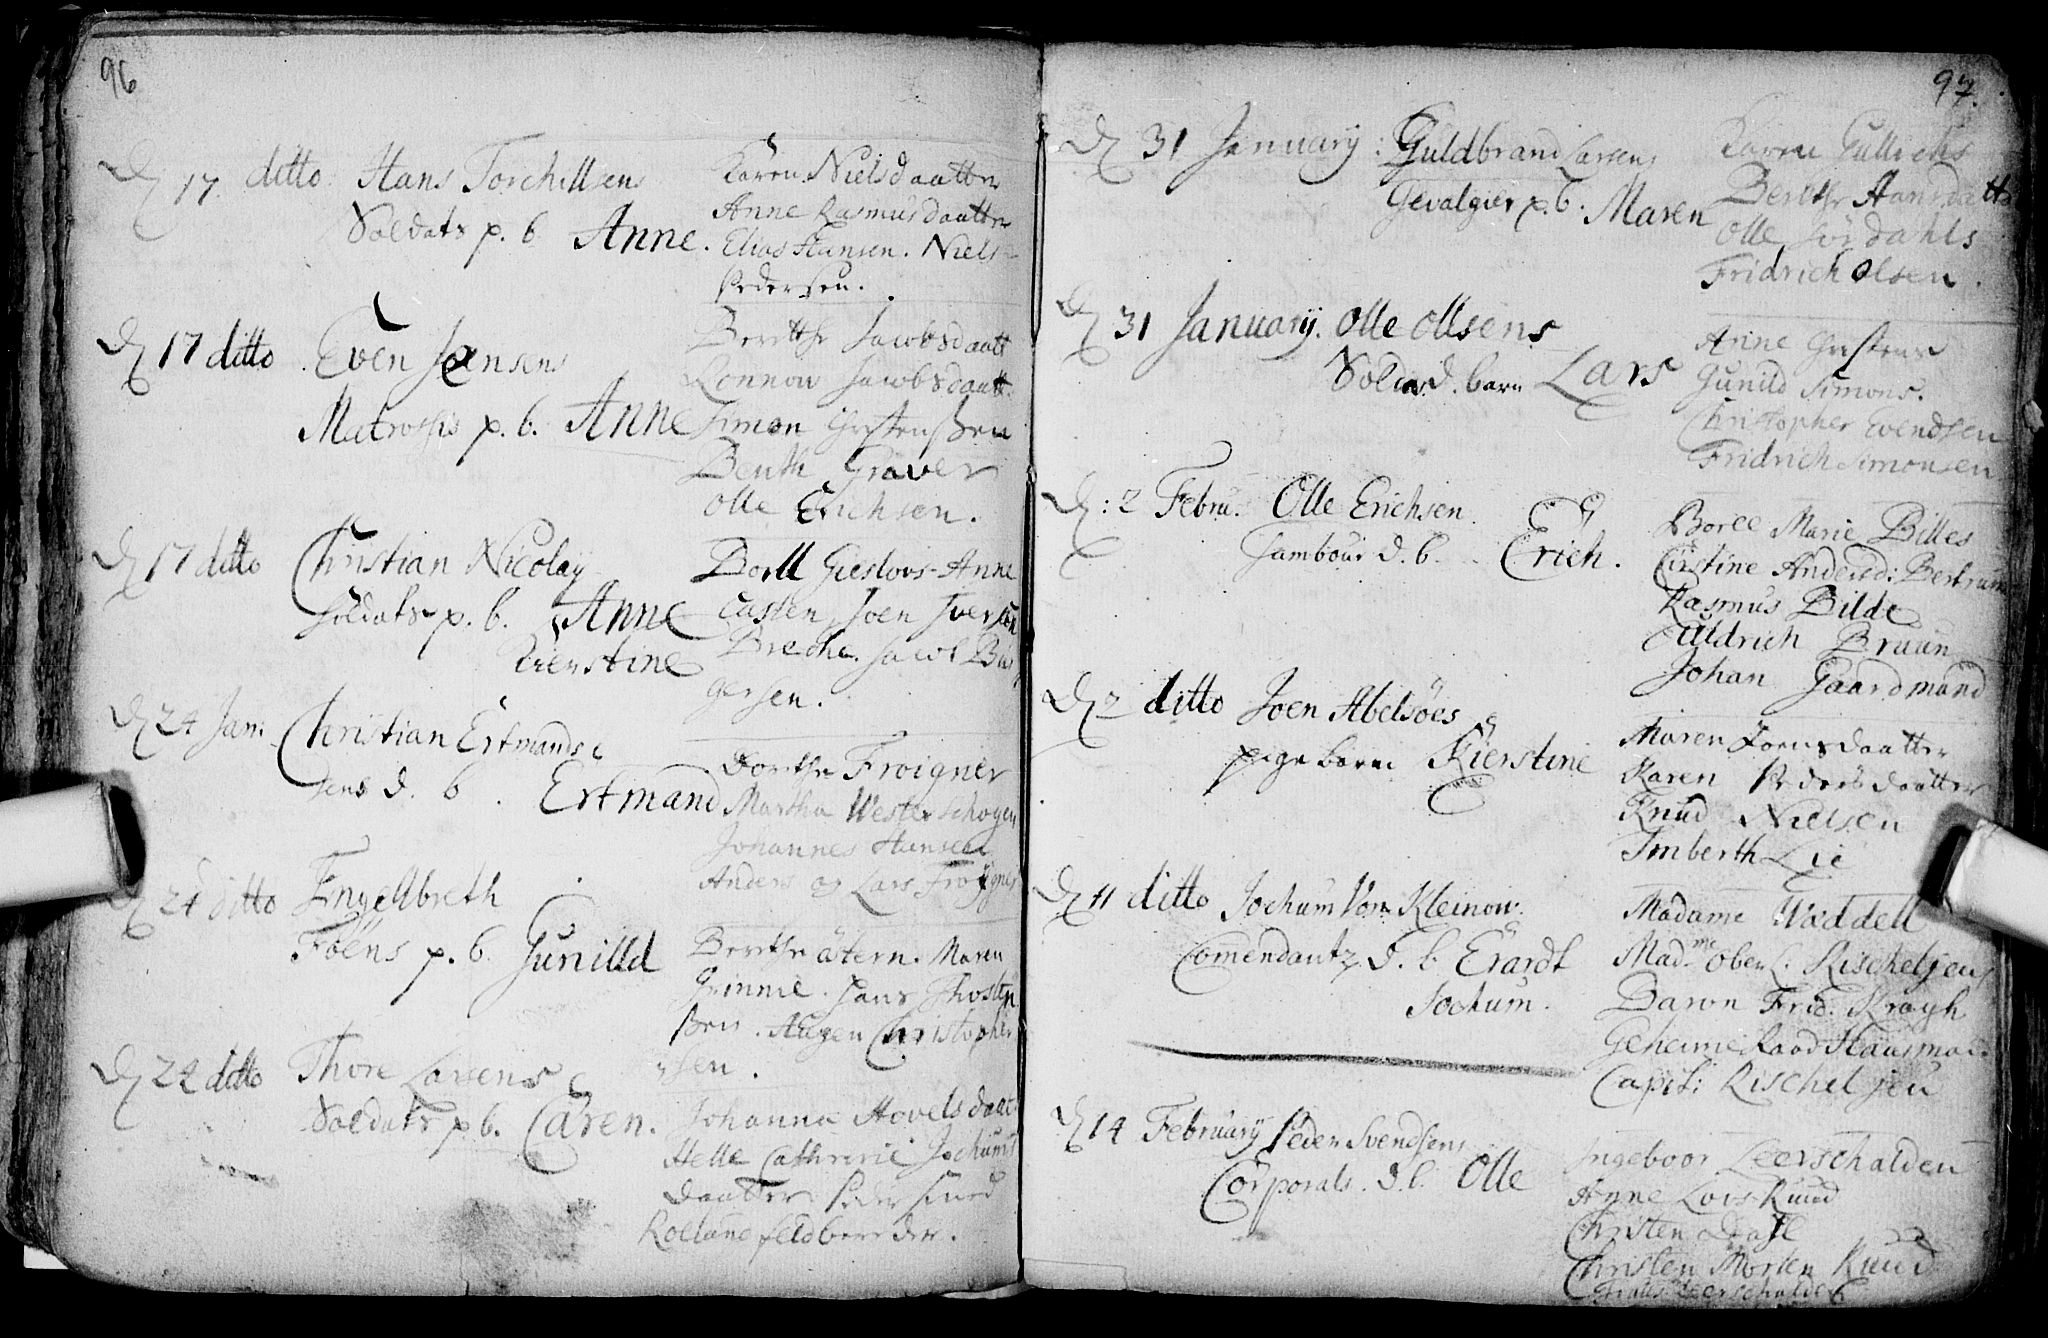 96
D 17 ditto Hans Torchillsens
Soldats p. b. Anne.
Karen Nielsdaatter
Anne Rasmusdaatter
Elias Hansen. Niels
Pedersen.
D 17 ditto. Even Jensens
Matrosses p. b. Anne
Berthe Jacobsdaatt
Lonnow Jacobsdaatt.
Simon
Benth Graver
Olle Erichsen.
D 17 ditto Christian Nicolaÿ
Soldats p. b. Anne
Kierstine
Gieslovs - Anne
Casten, Joen Iversøn
Bredke. Jacob Bür
gersen.
D 24 Jan: Christian Ertmands
sens d. b. Ertmand
Dorthe Froigner
Martha Westerschogen
Johannes Hansen
Anders og Lars Froÿgner
D 24 ditto Engelbreth
Foëns p. b. Gunilld
Berthe Maren
Grinnie. Hans
sen. Augen Christopher
sen.
D 24 ditto Thore Larsens
Soldats p b. Caren.
Johanna Hovelsdaat
Helle Cathrine Jochums
daatter Peder Smed
Roeland feldbereder.
97.
D 31 Januarÿ: Guldbrand Larsens
Gevalgier p. b. Maren
Karen Gullichs
Berthe Hansdatter
Olle Sördahls
Fridrich Olsen.
D 31 Januarÿ. Olle Ollsens
Soldas d. barn Lars
Anne
Gunild Simons.
Christopher Evendsen
Fridrich Simonsen
D: 2 Febru. Olle Erichsen
Tambour d. b. Erich.
Marie Billes
Cirstine Andersd: Bertrum
Rasmus Bilde
Uldrich Bruun
Johan Gaardmand
D 2 ditto Joen Abelsöes
pige barn Kierstine
Maren Joensdaatter
Karen Pedersdaatter
Knud Nielsen
Imberth Lie
D 11 ditto Jochum Von Kleinow.
Comendantz. d. b. Erardt
Jochum.
Madame Waddell
Madme Ober L. Rischeljeu
Baron Frid. Kragh
Geheime Raad Hausman.
Capit: Rischeljeu
D 14 Februarÿ Peder Svendsens
Corporals. d. b. Olle
Ingeboor Leerschalden
Anne Lars Ruud
Christen Dahl
Christen Morten Ruud
Leerschalden